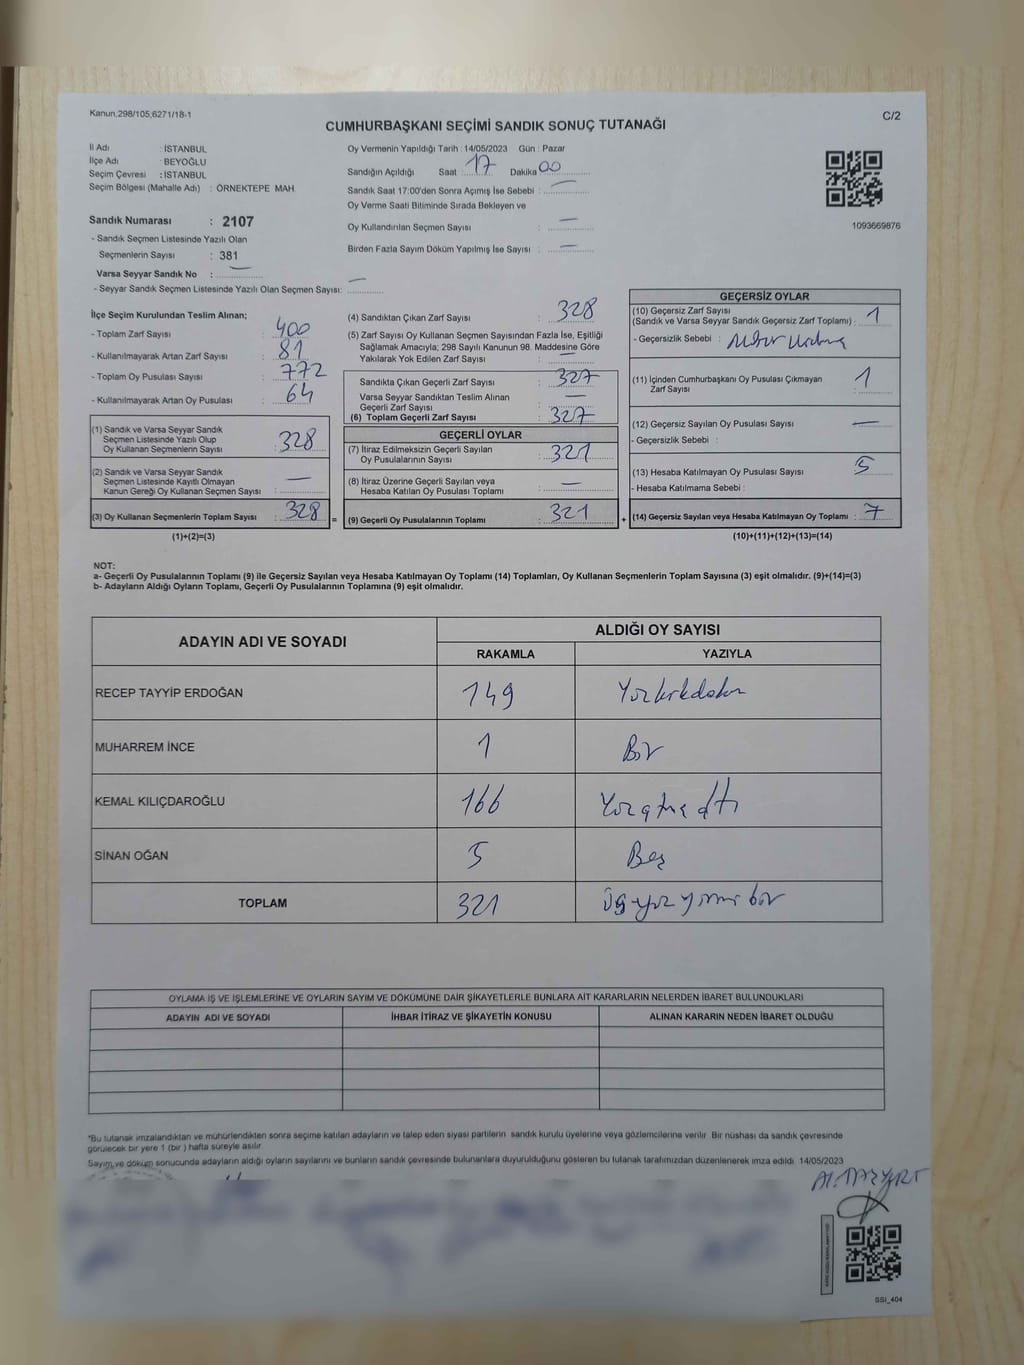 Kanun,298/105,6271/18-1
C/2
CUMHURBAŞKANI SEÇİMİ SANDIK SONUÇ TUTANAĞI
İl Adı : İSTANBUL
İlçe Adı : BEYOĞLU
Seçim Çevresi : İSTANBUL
Seçim Bölgesi (Mahalle Adı) : ÖRNEKTEPE MAH.
Sandık Numarası : 2107
- Sandık Seçmen Listesinde Yazılı Olan
Seçmenlerin Sayısı : 381
Varsa Seyyar Sandık No : —
- Seyyar Sandık Seçmen Listesinde Yazılı Olan Seçmen Sayısı: —
Oy Vermenin Yapıldığı Tarih : 14/05/2023 Gün : Pazar
Sandığın Açıldığı Saat : 17 Dakika 00
Sandık Saat 17:00'den Sonra Açımış İse Sebebi : —
Oy Verme Saati Bitiminde Sırada Bekleyen ve
Oy Kullandırılan Seçmen Sayısı : —
Birden Fazla Sayım Döküm Yapılmış İse Sayısı : —
1093669876
İlçe Seçim Kurulundan Teslim Alınan;
- Toplam Zarf Sayısı : 400
- Kullanılmayarak Artan Zarf Sayısı : 81
- Toplam Oy Pusulası Sayısı : 772
- Kullanılmayarak Artan Oy Pusulası : 64
(1) Sandık ve Varsa Seyyar Sandık
Seçmen Listesinde Yazılı Olup
Oy Kullanan Seçmenlerin Sayısı : 328
(2) Sandık ve Varsa Seyyar Sandık
Seçmen Listesinde Kayıtlı Olmayan
Kanun Gereği Oy Kullanan Seçmen Sayısı : —
(3) Oy Kullanan Seçmenlerin Toplam Sayısı : 328
(1)+(2)=(3)
(4) Sandıktan Çıkan Zarf Sayısı : 328
(5) Zarf Sayısı Oy Kullanan Seçmen Sayısından Fazla İse, Eşitliği
Sağlamak Amacıyla; 298 Sayılı Kanunun 98. Maddesine Göre
Yakılarak Yok Edilen Zarf Sayısı : —
Sandıkta Çıkan Geçerli Zarf Sayısı : 327
Varsa Seyyar Sandıktan Teslim Alınan
Geçerli Zarf Sayısı : —
(6) Toplam Geçerli Zarf Sayısı : 327
GEÇERLİ OYLAR
(7) İtiraz Edilmeksizin Geçerli Sayılan
Oy Pusulalarının Sayısı : 321
(8) İtiraz Üzerine Geçerli Sayılan veya
Hesaba Katılan Oy Pusulası Toplamı : —
= (9) Geçerli Oy Pusulalarının Toplamı : 321
GEÇERSİZ OYLAR
(10) Geçersiz Zarf Sayısı
(Sandık ve Varsa Seyyar Sandık Geçersiz Zarf Toplamı) : 1
- Geçersizlik Sebebi :
(11) İçinden Cumhurbaşkanı Oy Pusulası Çıkmayan
Zarf Sayısı 1
(12) Geçersiz Sayılan Oy Pusulası Sayısı —
- Geçersizlik Sebebi :
(13) Hesaba Katılmayan Oy Pusulası Sayısı 5
- Hesaba Katılmama Sebebi :
+ (14) Geçersiz Sayılan veya Hesaba Katılmayan Oy Toplamı : 7
(10)+(11)+(12)+(13)=(14)
NOT:
a- Geçerli Oy Pusulalarının Toplamı (9) ile Geçersiz Sayılan veya Hesaba Katılmayan Oy Toplamı (14) Toplamları, Oy Kullanan Seçmenlerin Toplam Sayısına (3) eşit olmalıdır. (9)+(14)=(3)
b- Adayların Aldığı Oyların Toplamı, Geçerli Oy Pusulalarının Toplamına (9) eşit olmalıdır.
ADAYIN ADI VE SOYADI
ALDIĞI OY SAYISI
RAKAMLA YAZIYLA
RECEP TAYYİP ERDOĞAN 149 Yüzkırkdokuz
MUHARREM İNCE 1 Bir
KEMAL KILIÇDAROĞLU 166 Yüzatmışaltı
SİNAN OĞAN 5 Beş
TOPLAM 321 üçyüzyirmibir
OYLAMA İŞ VE İŞLEMLERİNE VE OYLARIN SAYIM VE DÖKÜMÜNE DAİR ŞİKAYETLERLE BUNLARA AİT KARARLARIN NELERDEN İBARET BULUNDUKLARI
ADAYIN ADI VE SOYADI İHBAR İTİRAZ VE ŞİKAYETİN KONUSU ALINAN KARARIN NEDEN İBARET OLDUĞU
*Bu tutanak imzalandıktan ve mühürlendikten sonra seçime katılan adayların ve talep eden siyasi partilerin sandık kurulu üyelerine veya gözlemcilerine verilir. Bir nüshası da sandık çevresinde
görülecek bir yere 1 (bir) hafta süreyle asılır.
Sayım ve döküm sonucunda adayların aldığı oyların sayılarını ve bunların sandık çevresinde bulunanlara duyurulduğunu gösteren bu tutanak tarafımızdan düzenlenerek imza edildi. 14/05/2023
SSI_404